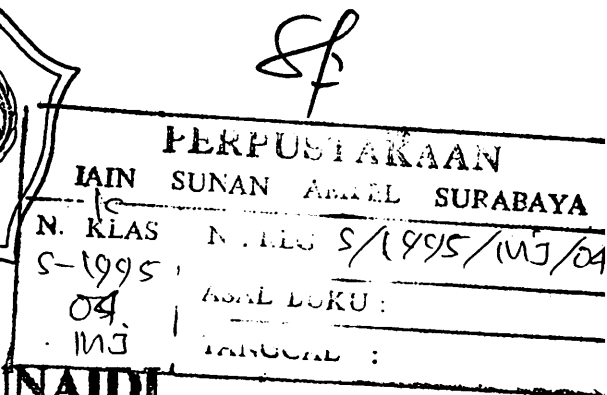 PERPUSTAKAAN
IAIN SUNAN AMPEL SURABAYA
N. KLAS
S-1995
04
N . REG S/1995/
ASAL BUKU :
TANGGAL :
NAIDI